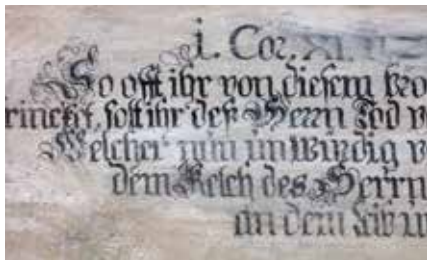 i. Cor. XI.
So offt ihr von diesem bro
trincket, solt ihr deß Herrn Tod v
Welcher nun unwürdig v
dem Kelch des Herrn
an dem Leib u